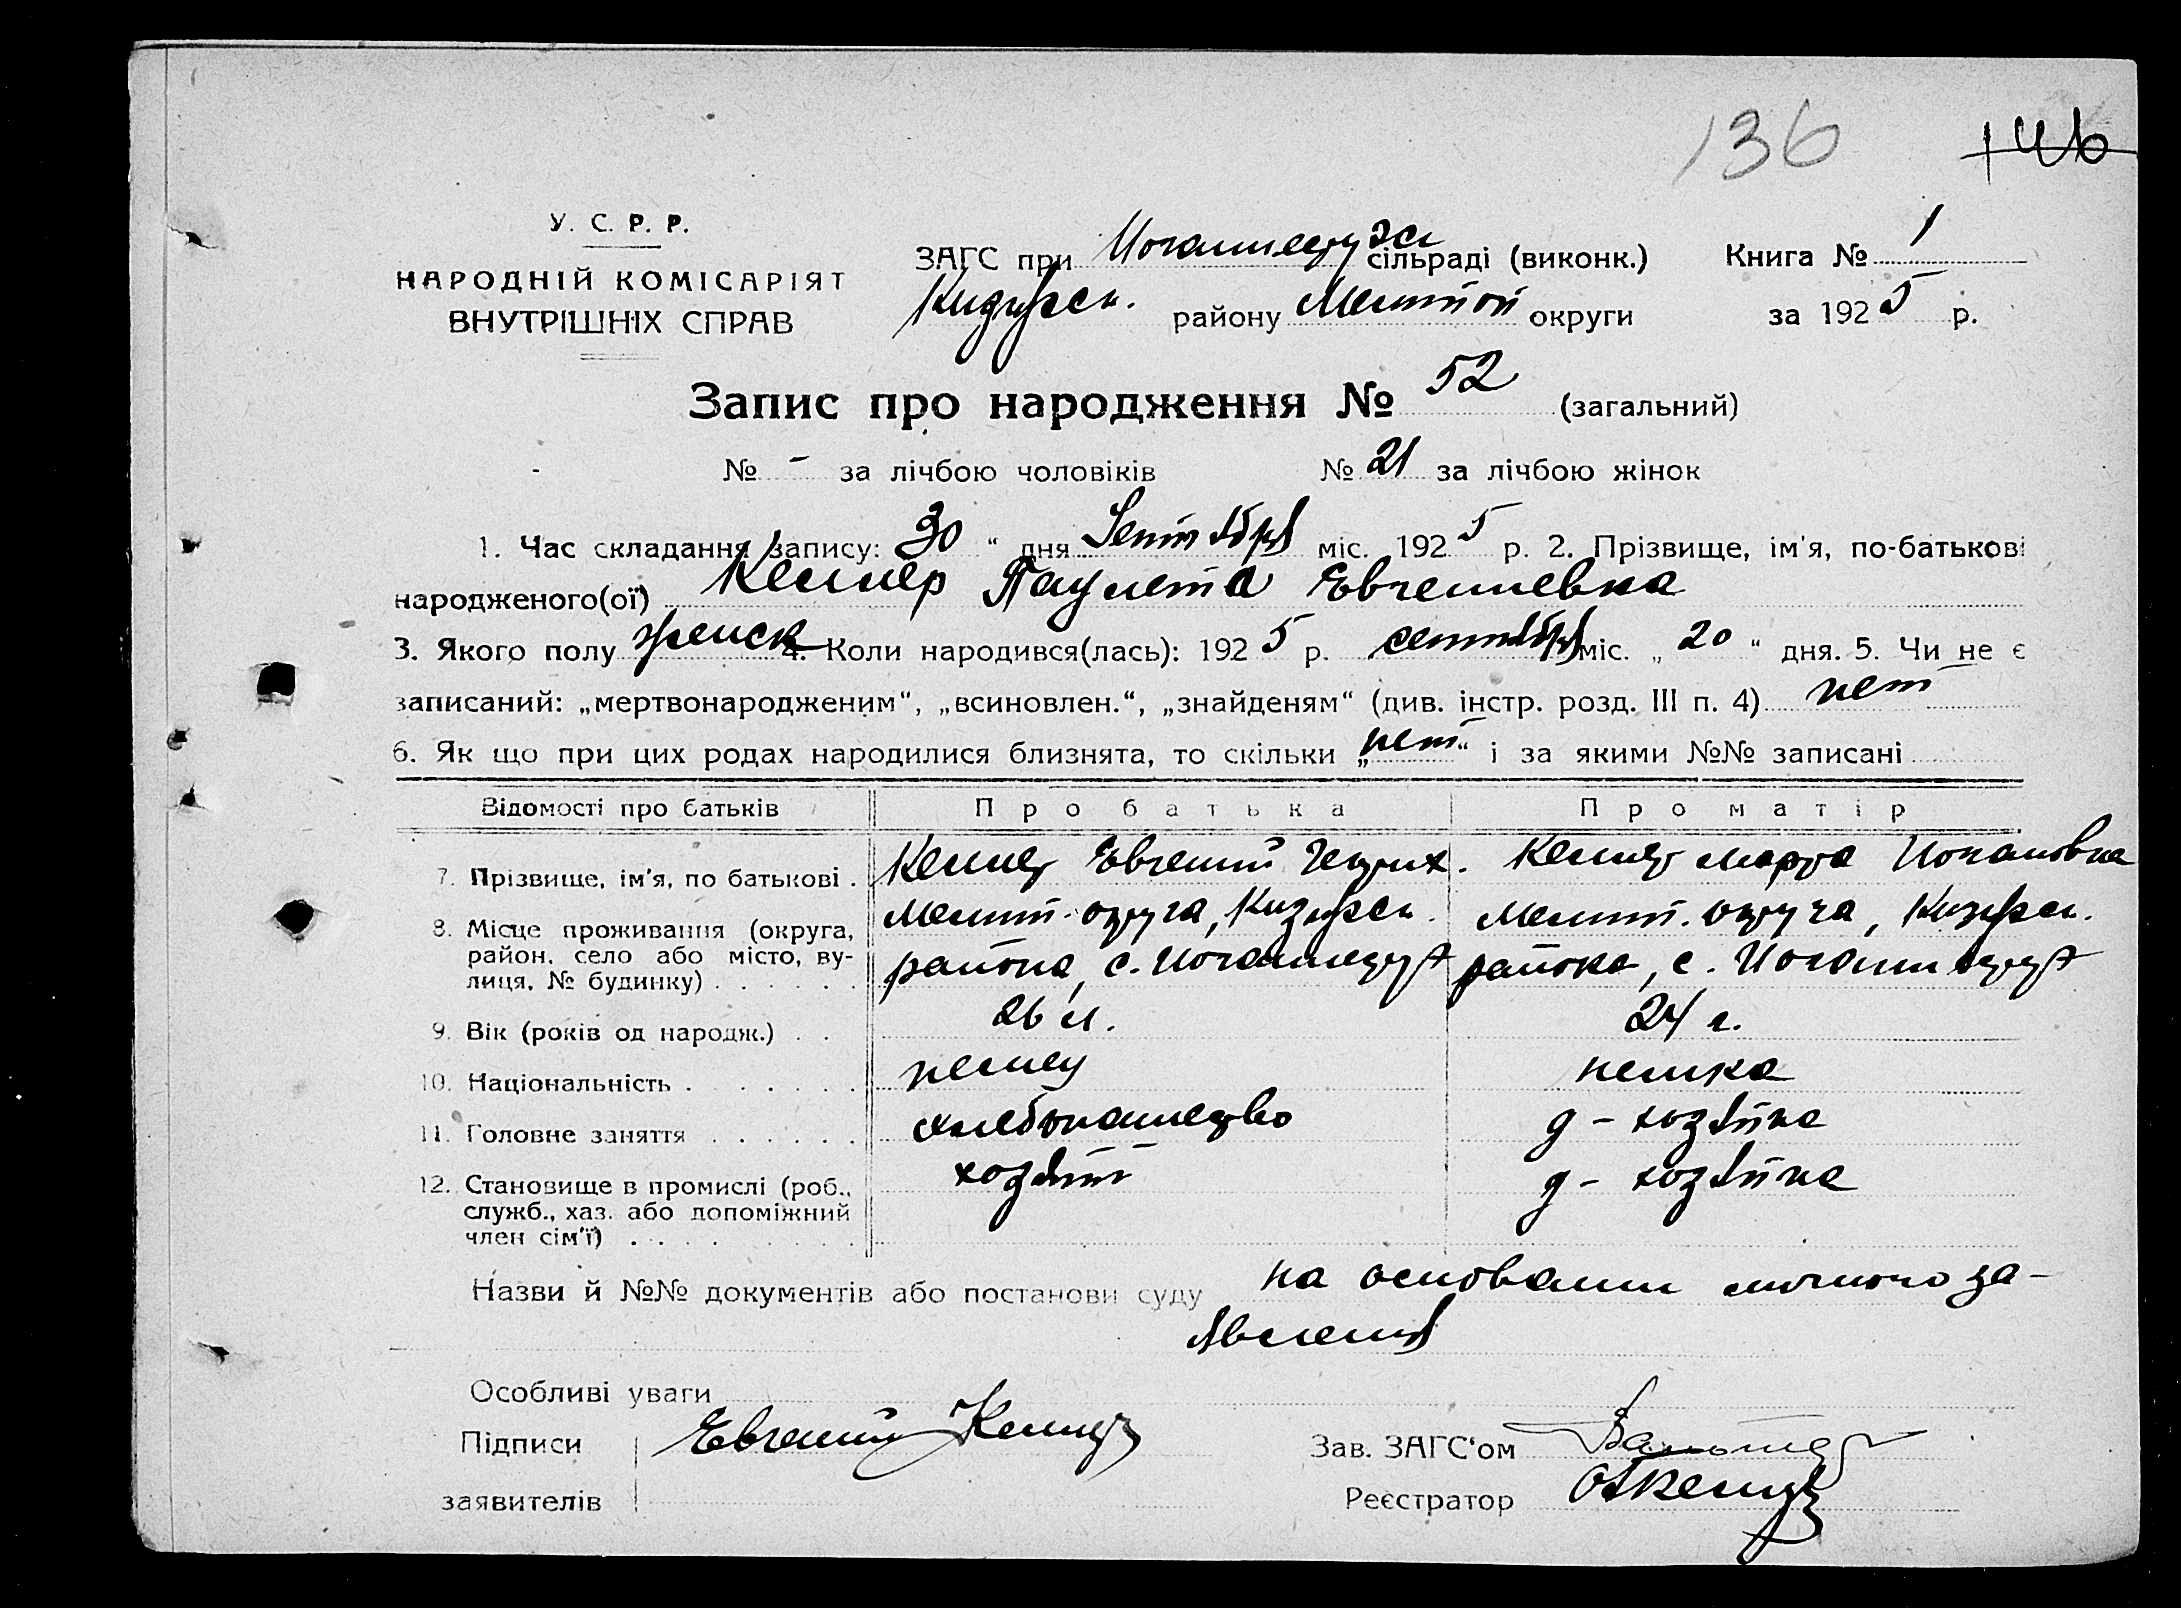 136 146
У. С. Р. Р.
НАРОДНІЙ КОМІСАРІЯТ
ВНУТРІШНІХ СПРАВ
ЗАГС при Иоганнеруж сільраді (виконк.) Книга № 1
району Мелитоп округи за 1925 р.
Запис про народження № 52 (загальний)
№ - за лічбою чоловіків № 21 за лічбою жінок
1. Час складання запису: 30 “ дня Сентября міс. 1925 р. 2. Прізвище, ім'я, по-батькові
народженого(ої) Кеслер Паулета Евгениевна
3. Якого полу женск 4. Коли народився(лась): 1925 р. сентября міс. „ 20 “ дня. 5. Чи не є
записаний: „мертвонародженим“, „всиновлен.“, „знайденям“ (див. інстр. розд. III п. 4) нет
6. Як що при цих родах народилися близнята, то скільки „ нет “ і за якими №№ записані
Відомості про батьків Про батька Про матір
7. Прізвище, ім'я, по батькові . Кеслер Евгений Генрих. Кеслер Марта Иогановна
8. Місце проживання (округа, Мелит. округа, Мелит. округа,
район, село або місто, ву- района, с. Иоганнеруж района, с. Иоганнеруж
лиця, № будинку) . . . . . .
9. Вік (років од народж.) . . 26 л. 24 г.
10. Національність . . . . . . . немец немка
11. Головне заняття . . . . . . хлебопашество д - хозяйка
12. Становище в промислі (роб., хозяин д - хозяйка
служб., хаз. або допоміжний
член сім'ї) . . . . . . . . .
Назви й №№ документів або постанови суду на основании личного за-
явления
Особливі уваги
Підписи Евгений Кеслер Зав. ЗАГС‘ом Вальтер
заявителів Реєстратор